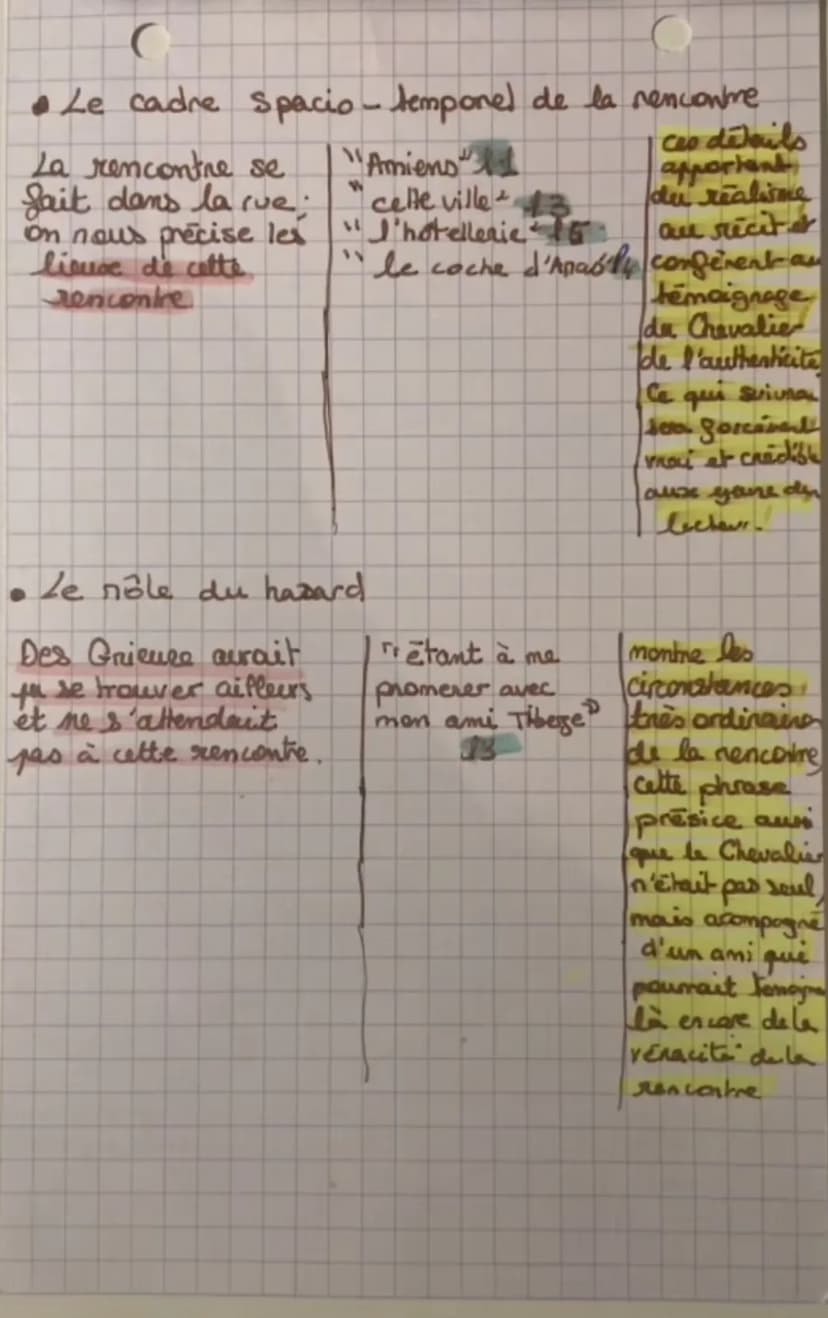 • Le cadre spacio-temporel de la rencontre
La rencontre se
fait dans la rue :
on nous précise les
lieux de cette
rencontre
"Amiens" l1
"cette ville" l3
"l'hotellerie" l5
"le coche d'Arras" l4
ces détails
apportent
du réalisme
au récit et
confèrent au
témoignage
du Chevalier
de l'authenticité
Ce qui suivra
sera forcément
vrai et crédible
aux yeux du
lecteur.
• Le rôle du hazard
Des Grieux aurait
pu se trouver ailleurs
et ne s'attendait
pas à cette rencontre.
"étant à me
promener avec
mon ami Tiberge"
l3
montre les
circonstances
très ordinaires
de la rencontre
cette phrase
présice aussi
que le Chevalier
n'était pas seul,
mais acompagné
d'un ami qui
pourrait
là encore de la
véracité de la
rencontre